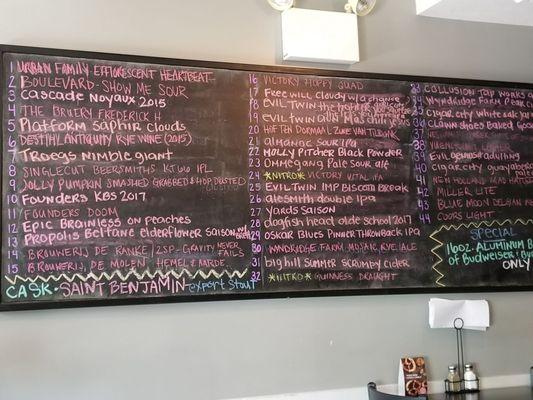 1 URBAN FAMILY EFFLORESCENT HEARTBEAT
2 BOULEVARD - SHOW ME SOUR
3 Cascade Noyaux 2015
4 THE BRUERY FREDERICK H
5 Platform Saphir Clouds
6 DESTIHL ANTIQUITY RYE WINE (2015)
7 Troegs nimble giant
8 SINGLECUT BEERSMITHS KT66 IPL
9 JOLLY PUMPKIN SMASHED GRABBED & HOP
10 Founders KBS 2017
11 FOUNDERS DOOM
12 Epic Brainless on peaches
13 Propolis Beltane elderflower saison
14 BROUWERIJ DE RANKE / 2SP - GRAVITY NEVER FAILS
15 BROUWERIJ DE MOLEN HEMEL & AARDE
CASK - SAINT BENJAMIN export stout
16 VICTORY HOPPY QUAD
17 Free will Cloudy w/a chance
18 EVIL TWIN the
19 evil twin
20
21 almanac sour IPA
22 MOLLY PITCHER Black POWDER
23 OMMEGANG Pale Sour ale
24 *NITRO* VICTORY VITAL IPA
25 EVIL TWIN IMP BISCOTTI Break
26 alesmith double IPA
27 Yards SAISON
28 dogfish head olde school 2017
29 OSKAR Blues PINNER THROWBACK IPA
30 WYNDRIDGE FARM MOSAIC RYE ALE
31 big hill Summer Scrumpy Cider
32 *NITRO* GUINNESS DRAUGHT
33 COLLUSION TAP WORKS
34 WYNDRIDGE FARM
35 cigar city white oak
36 CLOWN SHOES Baked Good
39 Evil Genius
40 cigar city guayabera
41 NEW HOLLAND
42 MILLER LITE
43 BLUE MOON BELGIAN
44 COORS LIGHT
SPECIAL
16oz. ALUMINUM
of Budweiser/
ONLY